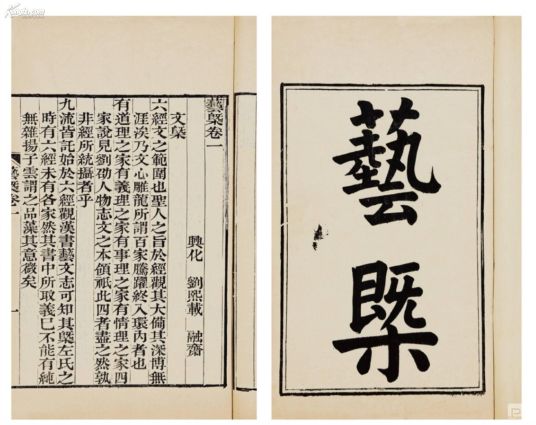 藝槩
藝槩卷一
興化 劉熙載 融齋
文槩
六經文之範圍也聖人之旨於經觀其大備其深博無
涯涘乃文心雕龍所謂百家騰躍終入環內者也
有道理之家有義理之家有事理之家有情理之家四
家說見劉劭人物志文之本領祇此四者盡之然孰
非經所統攝者乎
九流皆託始於六經觀漢書藝文志可知其槩左氏之
時有六經未有各家然其書中所取義已不能有純
無雜揚子雲謂之品藻其意微矣
藝槩卷一
一